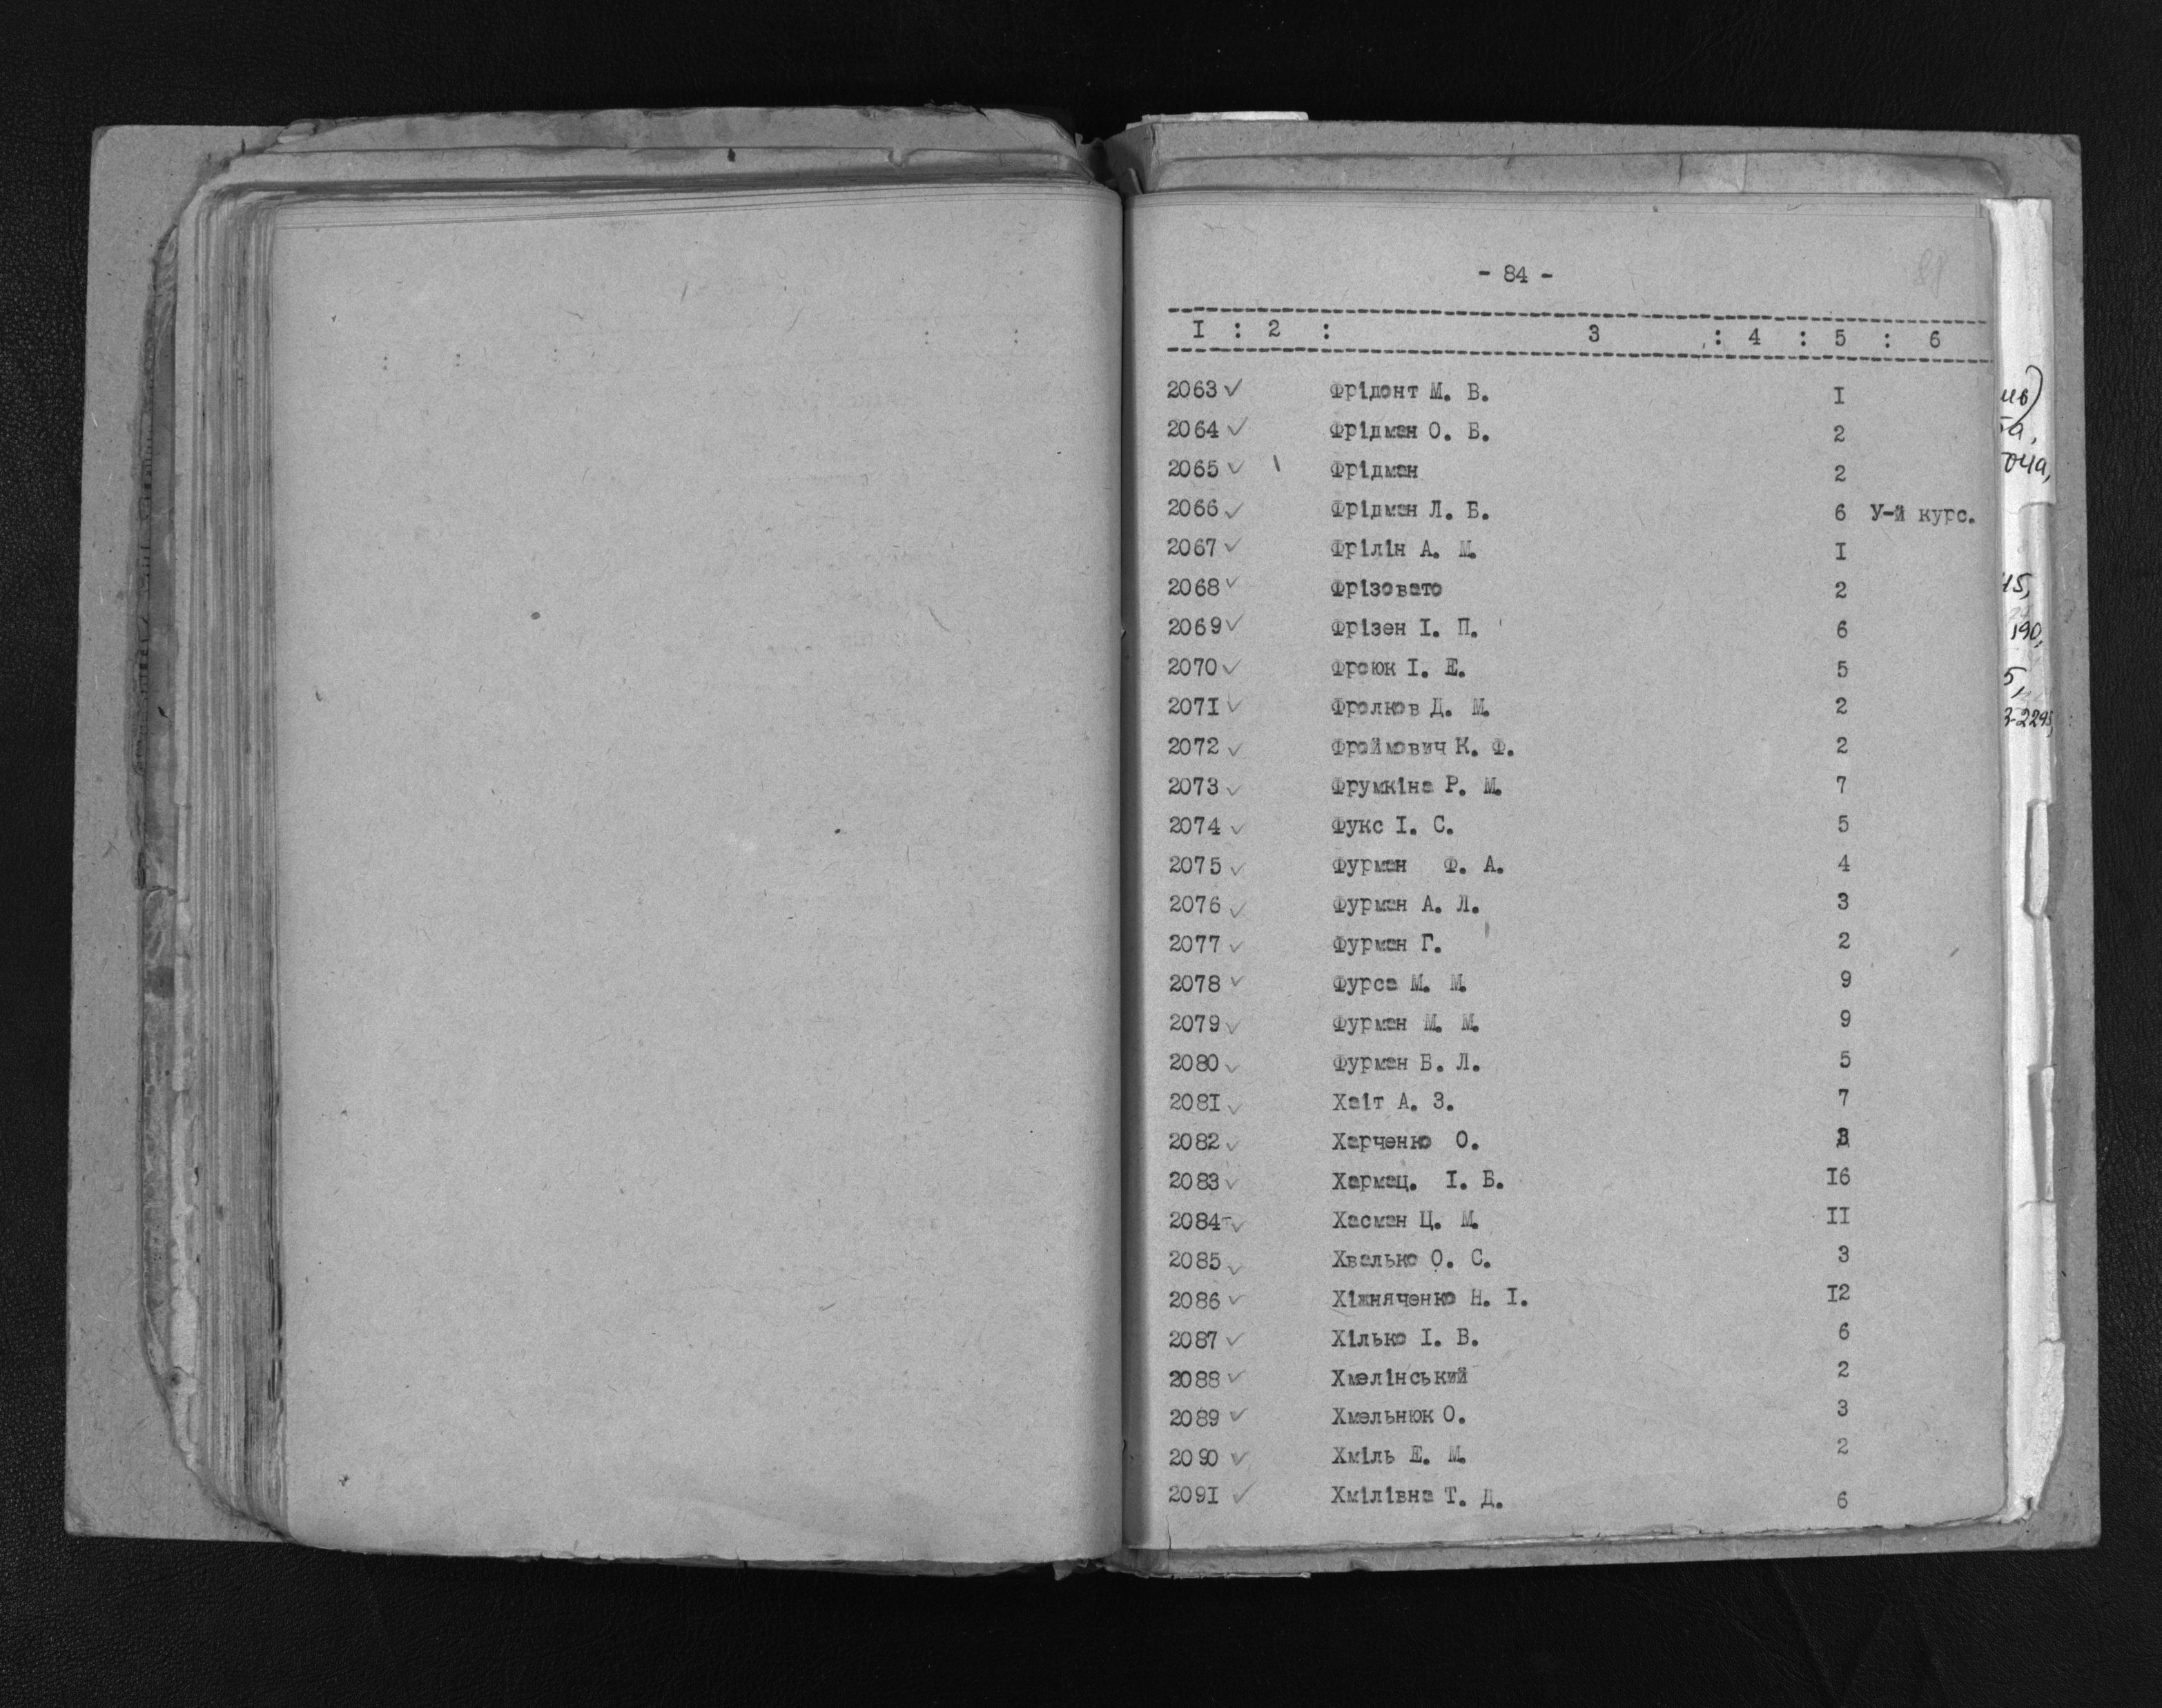 - 84 -
88
I : 2 : 3 : 4 : 5 : 6
2063 ✓ Фрідонт М. В. I
2064 ✓ Фрідман О. Б. 2
2065 ✓ Фрідман 2
2066 ✓ Фрідман Л. Б. 6 У-й курс.
2067 ✓ Фрілін А. М. I
2068 ✓ Фрізовато 2
2069 ✓ Фрізен І. П. 6
2070 ✓ Фроюк І. Е. 5
2071 ✓ Фролков Д. М. 2
2072 ✓ Фроймович К. Ф. 2
2073 ✓ Фрумкіна Р. М. 7
2074 ✓ Фукс І. С. 5
2075 ✓ Фурман Ф. А. 4
2076 ✓ Фурман А. Л. 3
2077 ✓ Фурман Г. 2
2078 ✓ Фурса М. М. 9
2079 ✓ Фурман М. М. 9
2080 ✓ Фурман Б. Л. 5
2081 ✓ Хаіт А. З. 7
2082 ✓ Харченко О. 3
2083 ✓ Хармац. І. Б. I6
2084 ✓ Хасман Ц. М. II
2085 ✓ Хвалько О. С. 3
2086 ✓ Хіжняченко Н. І. I2
2087 ✓ Хілько І. В. 6
2088 ✓ Хмелінський 2
2089 ✓ Хмельнюк О. 3
2090 ✓ Хміль Е. М. 2
2091 ✓ Хмілівна Т. Д. 6
190,